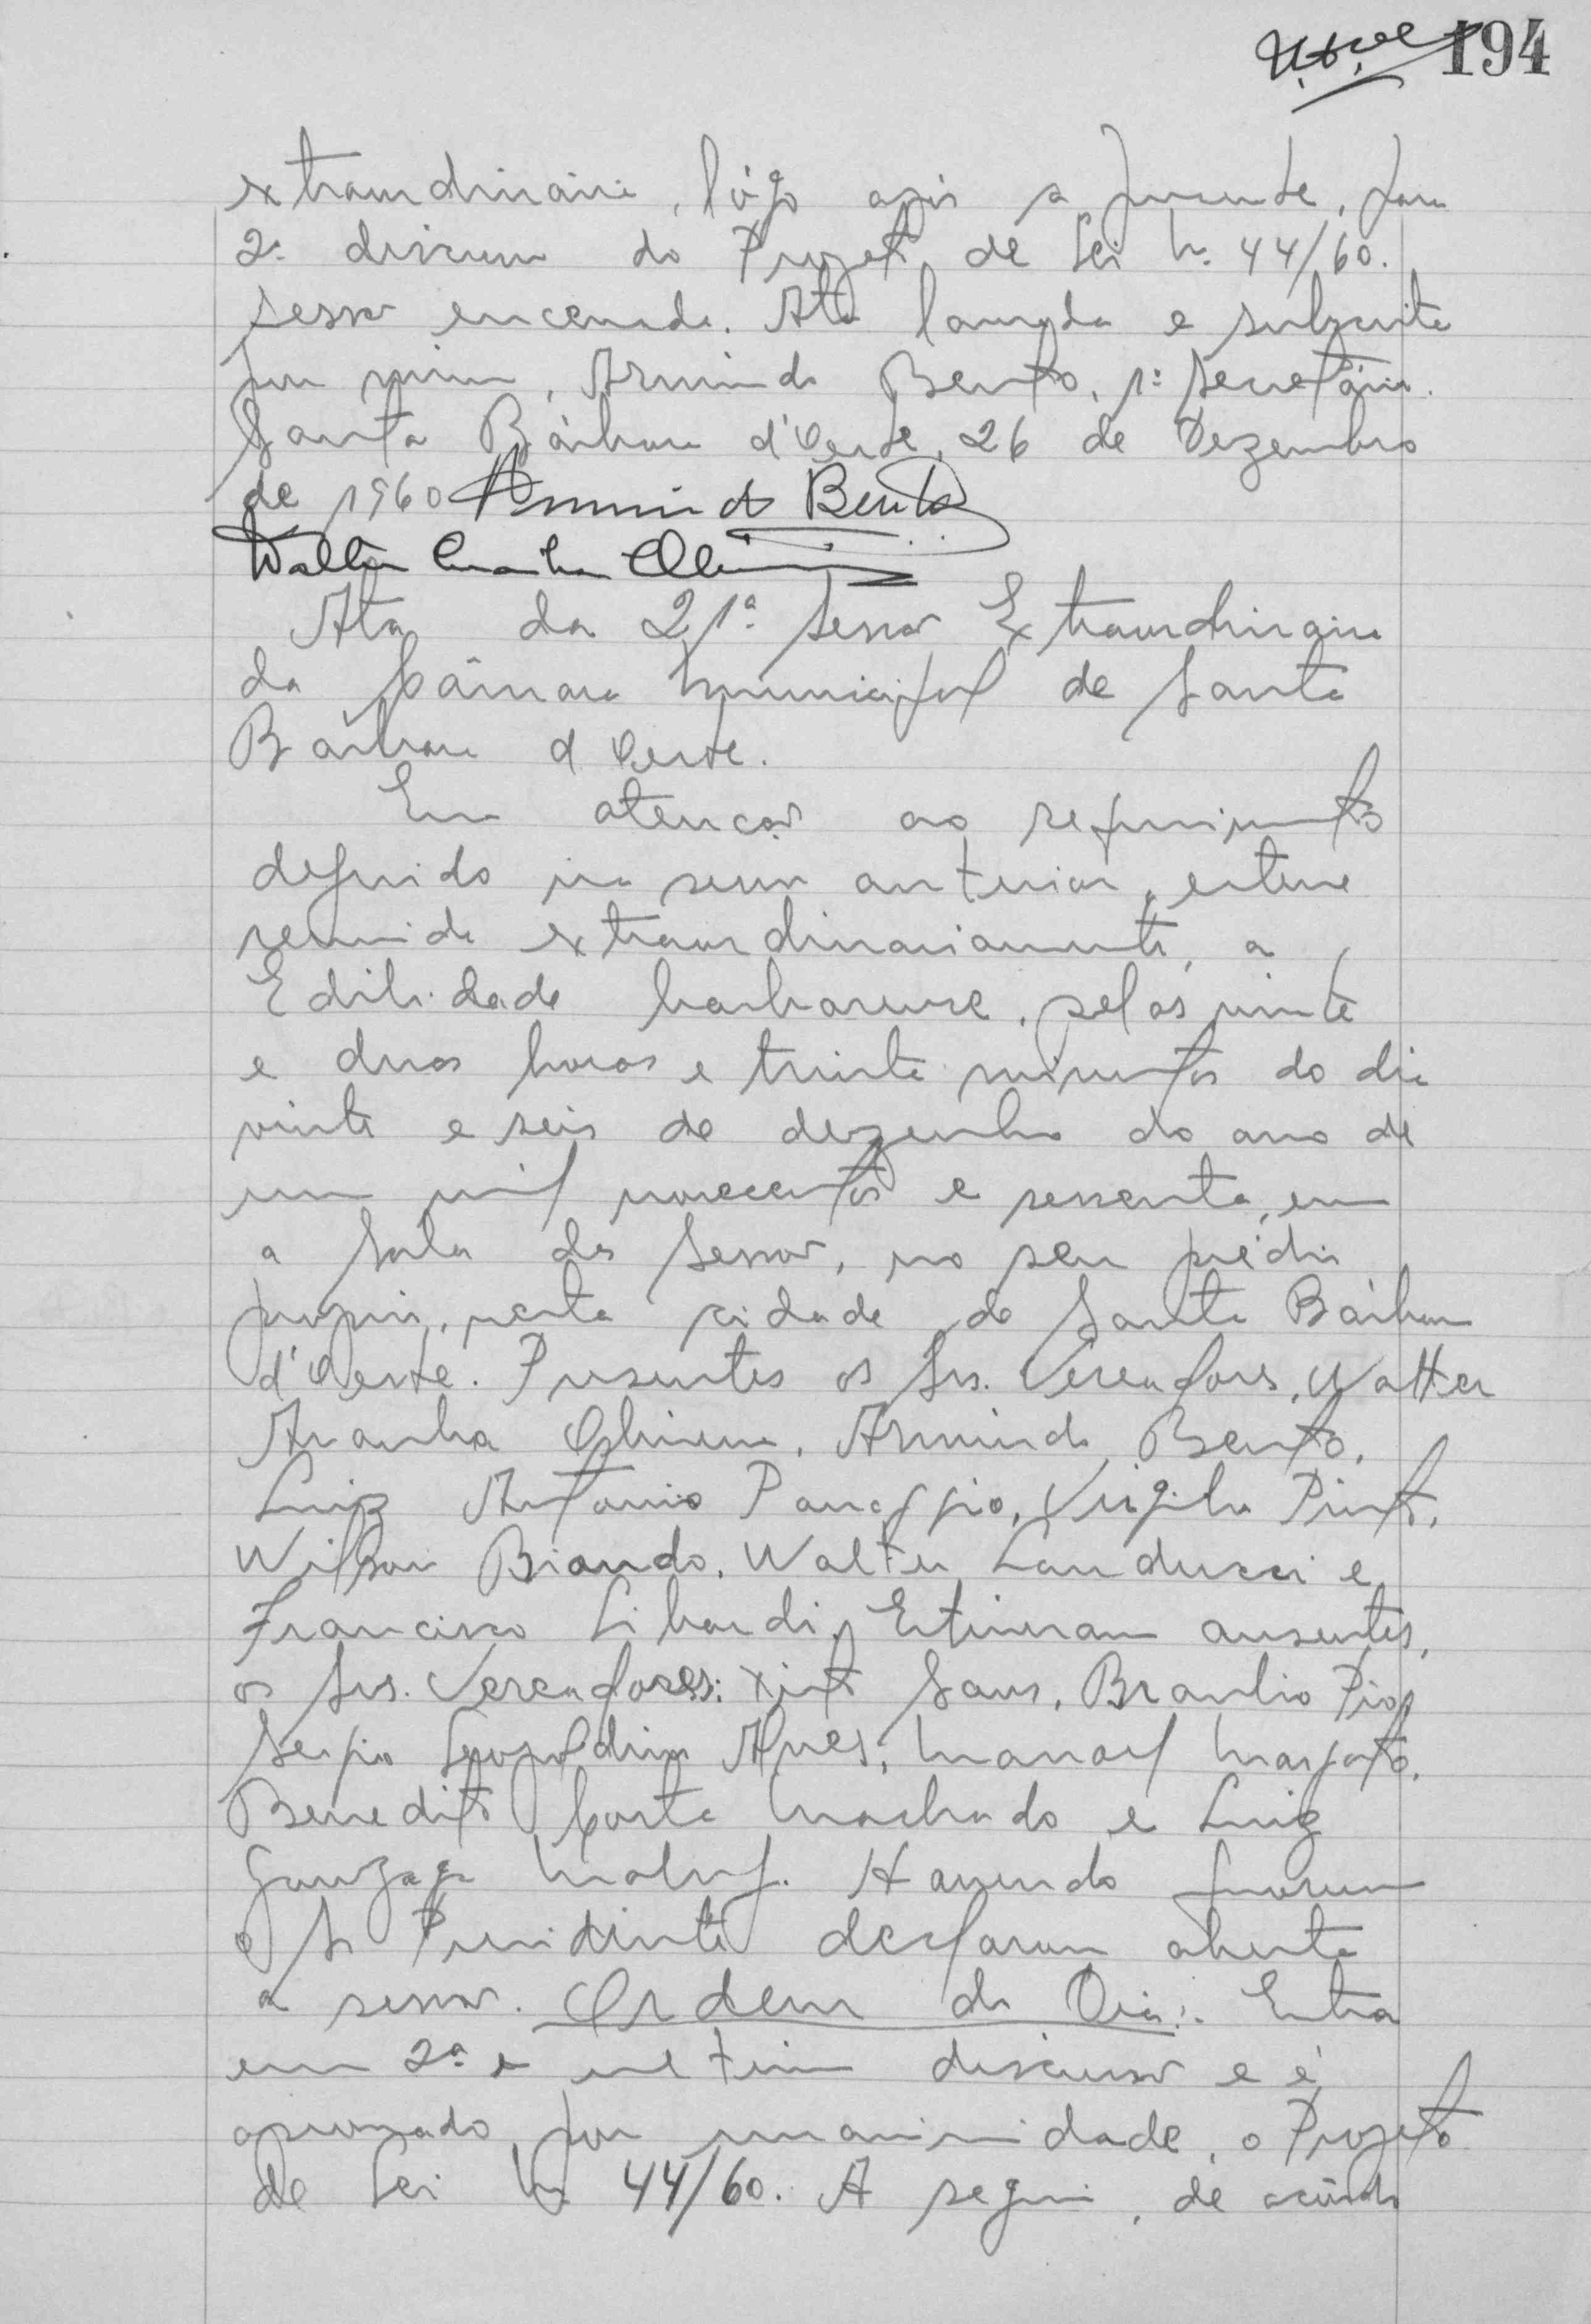 194
extraordinária, lógo após a presente, para
2ª discussão do Projeto de Lei n. 44/60.
Sessão encerrada. Ata lavrada e subscrita
por mim, Armindo Bento, 1º Secretário.
Santa Bárbara d'Oeste, 26 de Dezembro
de 1960 Armindo Bento
Walter Aranha Oliveira
Ata da 21ª Sessão Extraordinária
da Câmara Municipal de Santa
Bárbara d'Oeste.
Em atenção ao requerimento
deferido na sessão anterior, esteve
reunida extraordinariamente, a
Edilidade barbarense, pelas vinte
e duas horas e trinta minutos do dia
vinte e seis de dezembro do ano de
um mil novecentos e sessenta, em
a Sala das Sessões, no seu prédio
proprio, nesta cidade de Santa Bárbara
d'Oeste. Presentes os Srs. Vereadores, Walter
Aranha Oliveira, Armindo Bento,
Luiz Antonio Panaggio, Virgilio Pinto,
Wilson Biondo, Walter Landucci e
Francisco Libardi. Estiveram ausentes,
os Srs. Vereadores: Xisto Sans, Braulio Pio,
Sergio Leopoldino Alves, Manoel
Benedito Costa Machado e Luiz
Gonzaga Maluf. Havendo quorum
o Sr Presidente declarou aberta
a sessão. Ordem do Dia: Entra
em 2ª e ultima discussão e é
aprovado por unanimidade, o Projeto
de Lei n. 44/60. A seguir, de acôrdo